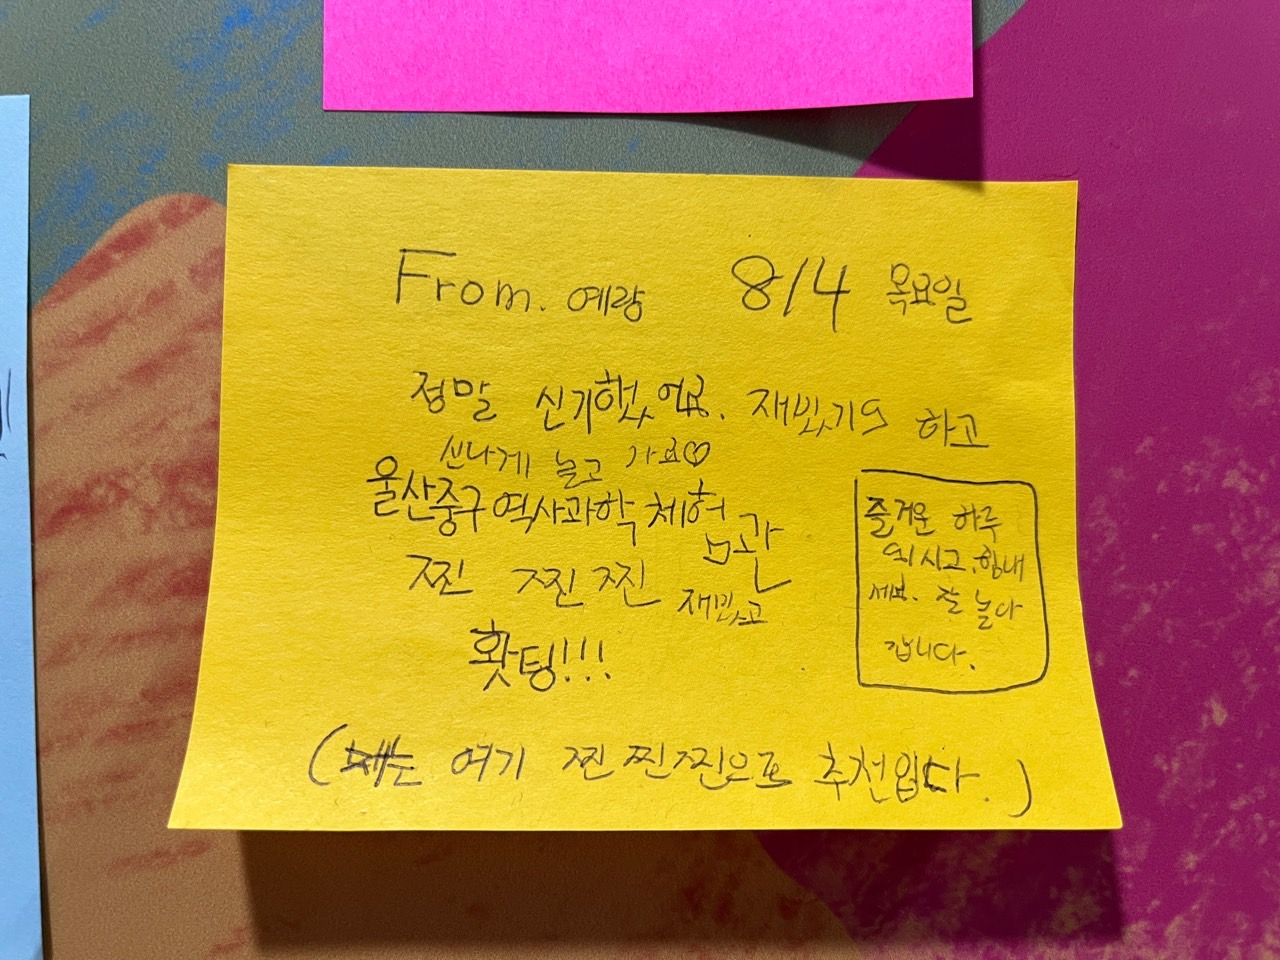 From. 예랑 8/4 목요일
정말 신기했어요. 재밌기도 하고
신나게 놀고 가요♡
울산중구역사과학체험관
찐 찐찐 재밌고
홧팅!!!
즐거운 하루
되시고, 힘내
세요. 잘 놀다
갑니다.
( 여기 찐찐찐으로 추천입니다.)